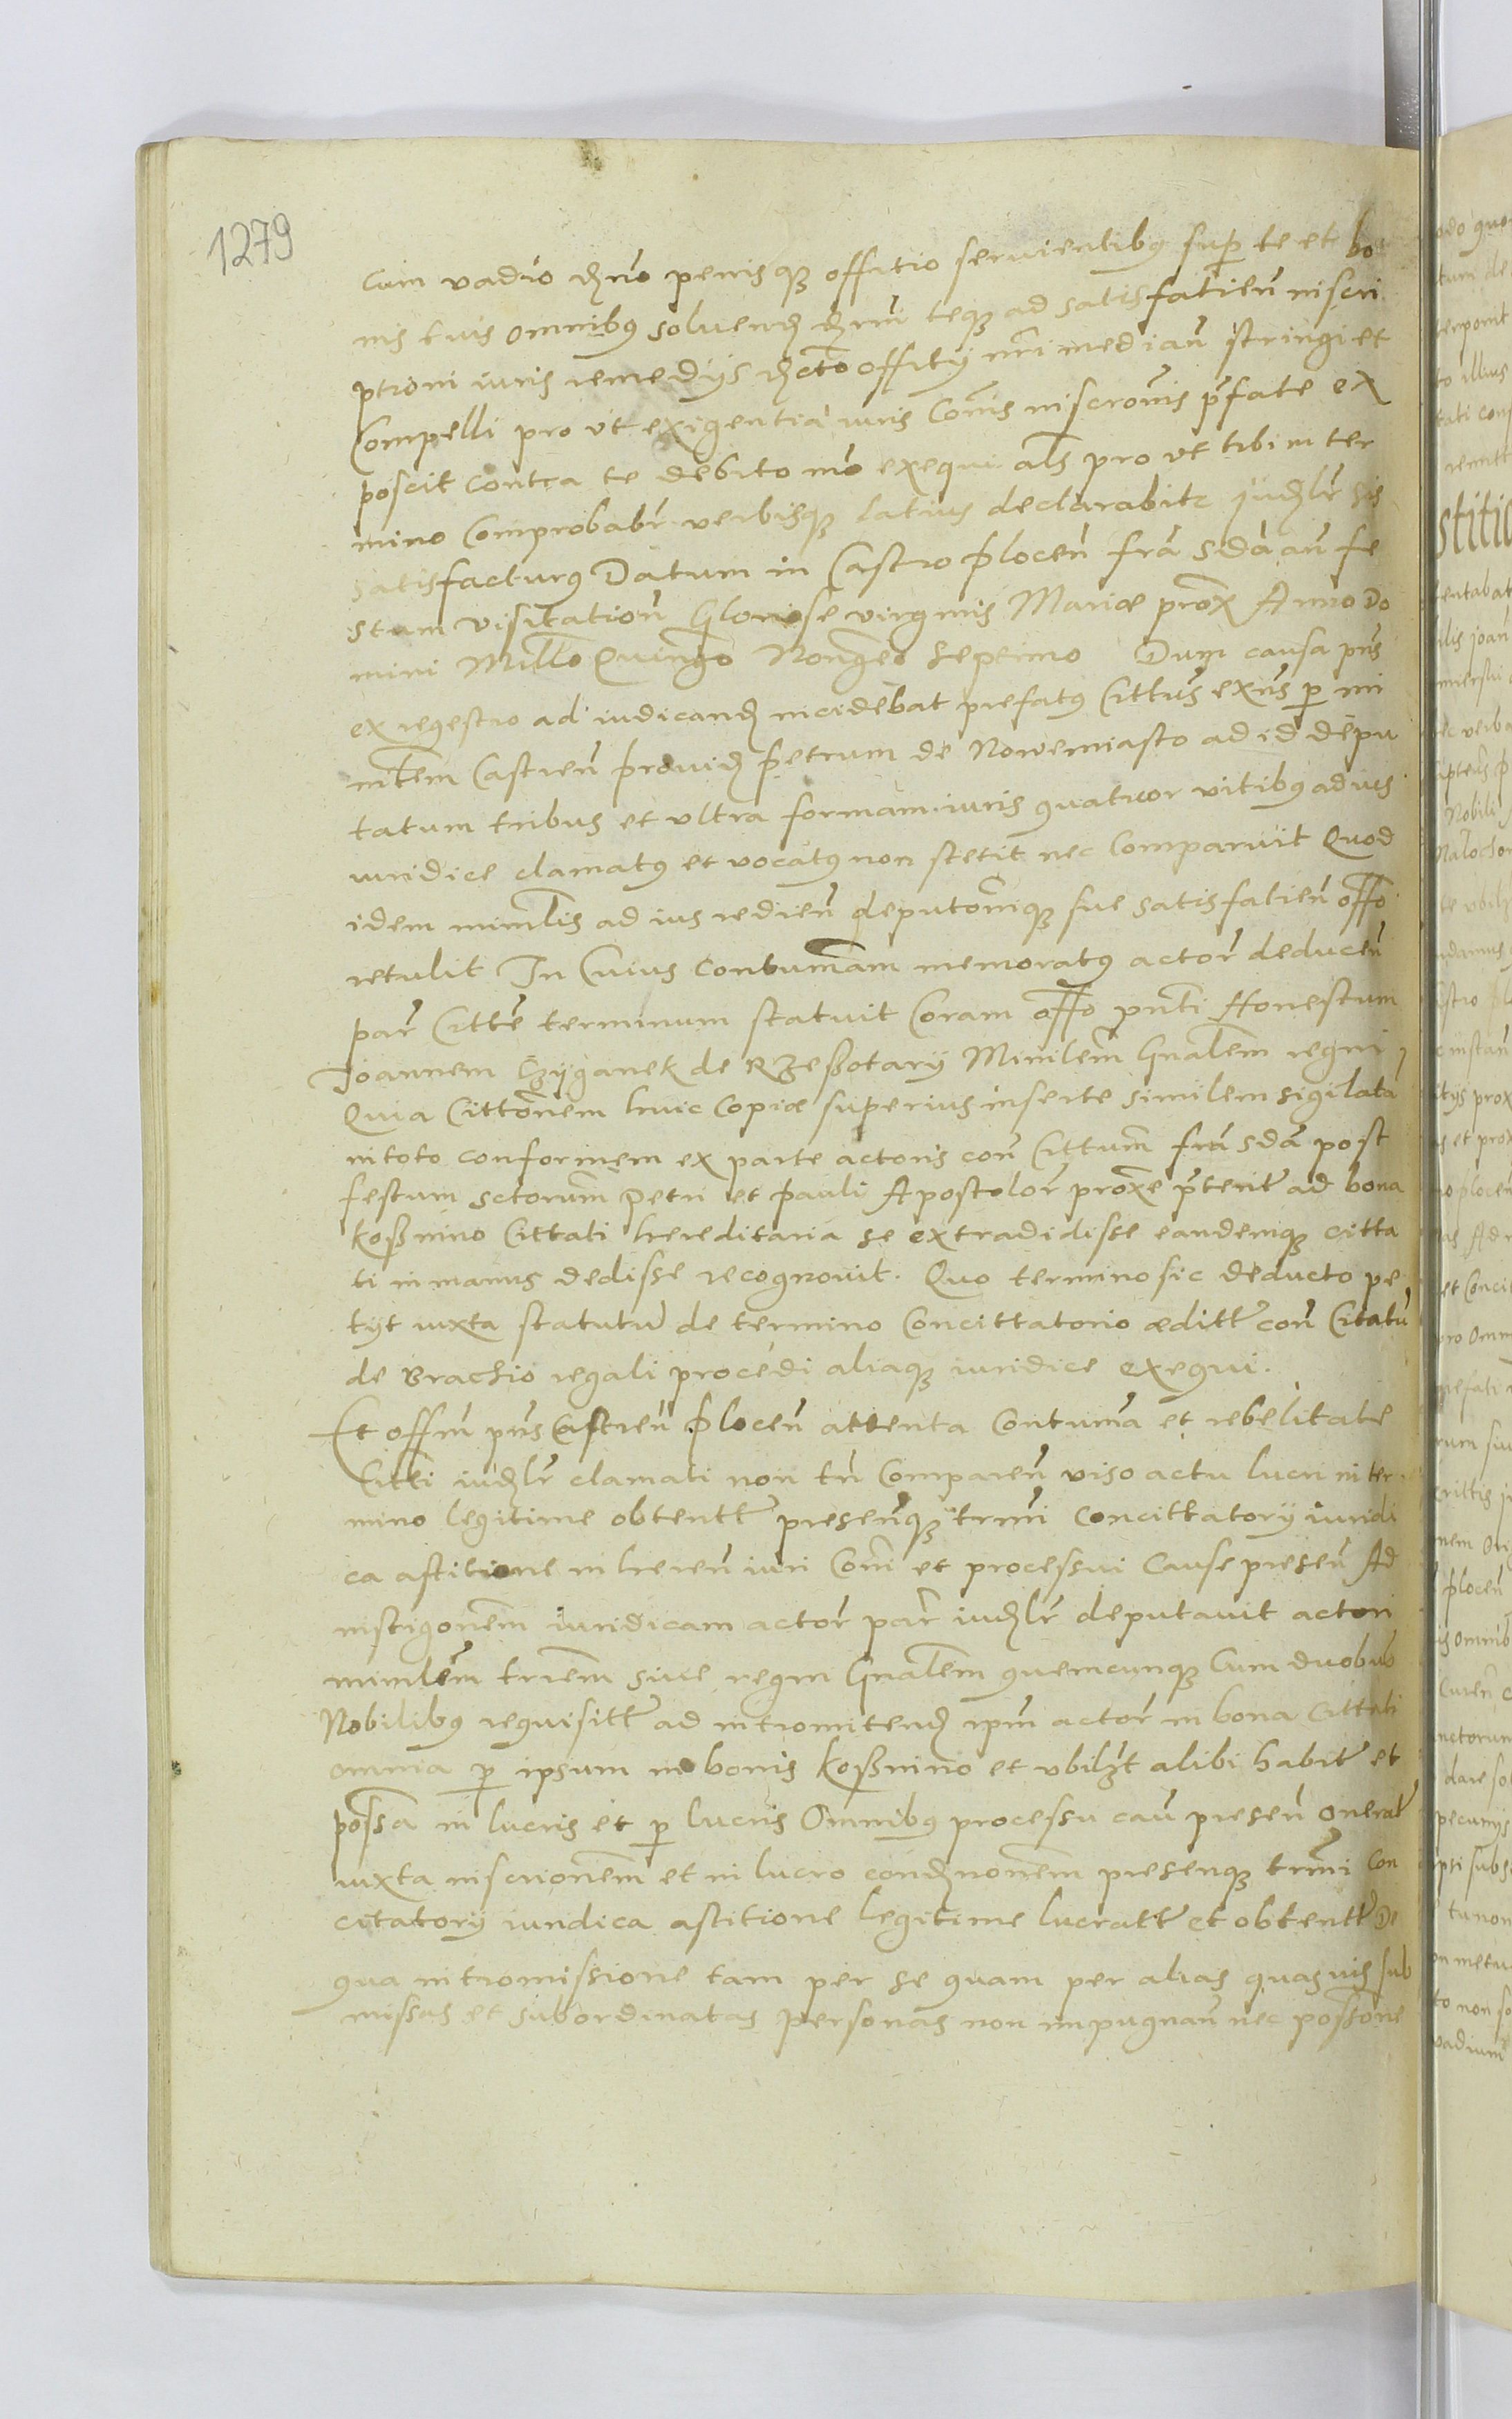 1279
cum vadio dño penisqȝ offitio servientibꝰ super te et bo
nis tuis omnibꝰ soluenđ đnri teqȝ ad satisfatieñ niscri
ptioni iuris remedÿs decto offitÿ nri mediañ stringi et
Compelli pro vt exigentia iuris Cois niscronis pfate ex
poscit contra te debito mo exequi als pro vt tibi in ter
mino Comprobabr verbisqȝ latius declarabitr iudlr sis
satisfacturꝰ Datum in Castro ploceñ fra sda añ fe
stum visitationi Gloriose virginis Mariæ prox Anno Do
mini Millo Quingo Nonageo septimo Dum causa pns
ex regestro ad iudicanđ incidebat prefatꝰ Cittus exns p mi
niltem Castreñ providđ petrum de Nowemiasto ad id depu
tatum tribus et vltra formam iuris quatuor vitibꝰ ad ius
iuridice clamatꝰ et vocatꝰ non stetit nec Comparuit Quod
idem minlis ad ius redieñ deputoniqȝ sue satisfatieñ offo
retulit In Cuius Contumam memoratꝰ actor deduceñ
par Citte terminum statuit Coram offo pnti Honestum
Joannem Czÿganek de Rzeßotarÿ Minilem Gnalem regni
Quia Cittonem huic Copiæ superius inserte similem sigilata
in toto conformem ex parte actoris con Cittum fra sda post
festum sctorum Petri et Pauli Apostolor proxe pterit ad bona
Koßnino Cittati hereditaria se extradidisse eandemqȝ citta
ti in manus dedisse recognovit. Quo termino sic deducto pe
tÿt iuxta statutu de termino Concittatorio æditt con Citatu
de Brachio regali procedi aliaqȝ iuridice exequi.
Et offm pns Castreñ ploceñ attenta Contuma et rebelitate
Citti iudlr clamati non tn Compareñ viso actu lucri in ter
mino legitime obtentt preseñqȝ trmi Concittatorÿ iuridi
ca astitione in hereñ iuri Coi et processui Cause preseñ Ad
nistigonem iuridicam actor par iudlr deputauit actori
minlem triem siue regni Gnalem quemcunqȝ Cum duobus
Nobilibꝰ requisitt ad intromitenđ ipm actor in bona Cittati
omnia p ipsum in bonis Koßnino et vbilzt alibi habit et
possa in lucris et p lucris Omnibꝰ processu cau preseñ onerat
iuxta niscrionem et in lucro condnonem presenqȝ trmi Con
citatorÿ iuridica astitione legitime lucratt et obtentt De
qua intromissione tam per se quam per alias quasuis sub
missas et subordinatas personas non impugnañ nec possone